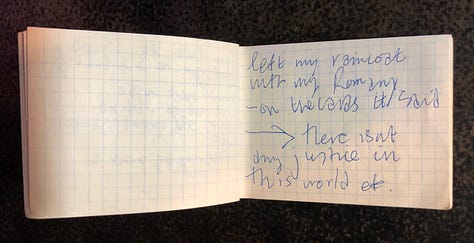 left my raincoat
with my Romany
- on the cards it said
→ there isnt
any justice in
this world etc.